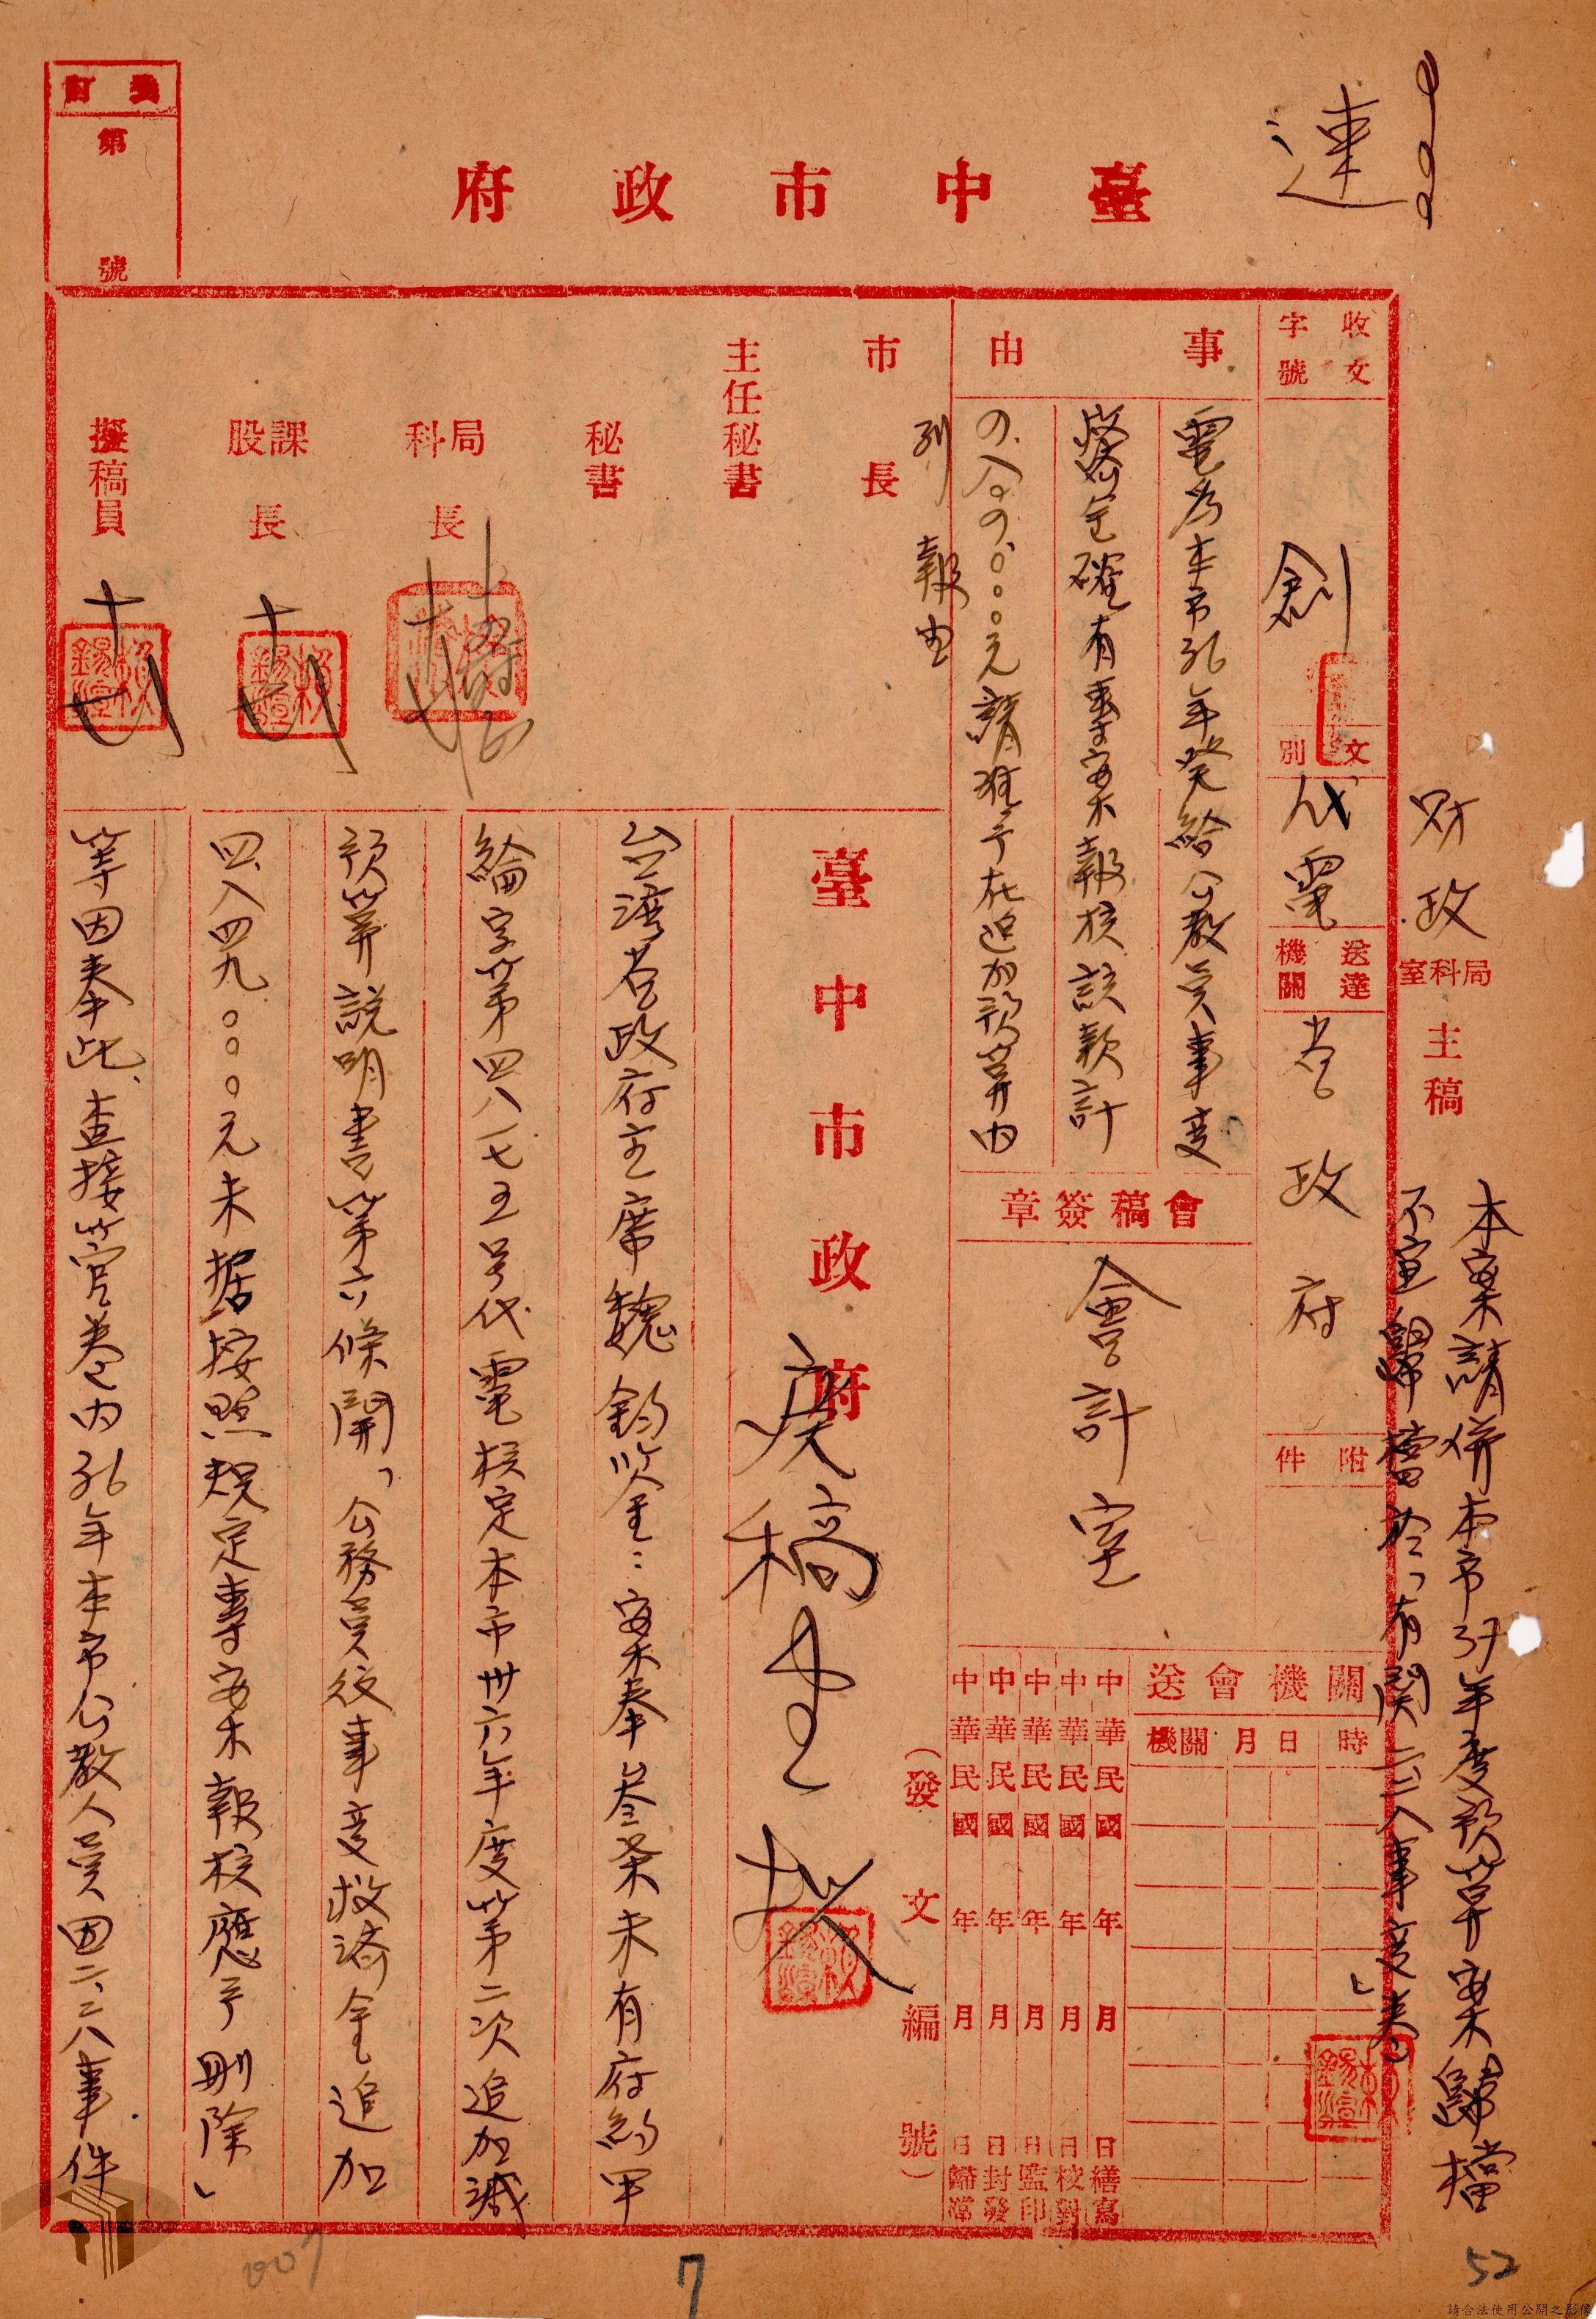 速
臺中市政府
裝訂
第 號
財政 局科室 主稿
本案請併本市37年度預算案歸檔
不宜歸檔於「有關二二八事变卷」
收文
字號
創
文別
代電
送達機關
省政府
附件
事由
電為本市36年癸給公教員事变
救濟金確有專案報核該款計
4,849,000元請准予在追加預算内
列報由
會稿簽章
會計室
關機會送
時 日 月 機關
中華民國 年 月 日繕寫
中華民國 年 月 日校對
中華民國 年 月 日監印
中華民國 年 月 日封發
中華民國 年 月 日歸檔
(發文編號)
市長
主任秘書
秘書
局科長
課股長
擬稿員
臺中市政府
台灣省政府主席魏鈞鑒：案奉叁柒未有府約甲
綸字第四八一七五号代電核定本市卅六年度第二次追加減
預算說明書第六條開「公務員役事变救濟金追加
四、八四九、○○○元未据按照規定專案報核應予刪除」
等因奉此、查接管卷内36年本市公教人員因二、二八事件
007
7
52
請合法使用公開之影像